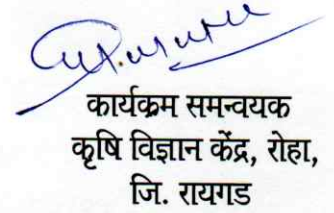 कार्यक्रम समन्वयक
कृषि विज्ञान केंद्र, रोहा,
जि. रायगड